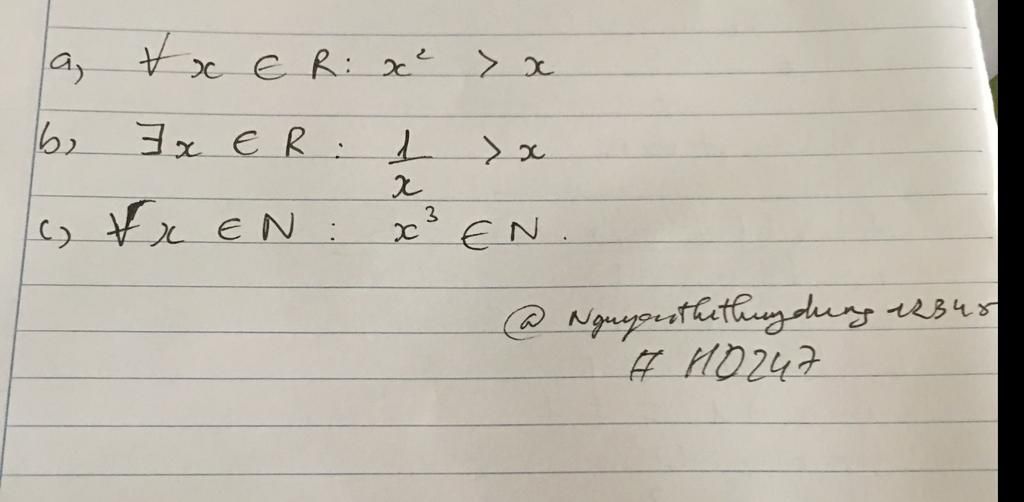 a, ∀x ∈ R: x² > x
b, ∃x ∈ R : 1/x > x
c, ∀x ∈ N : x³ ∈ N.
@ Nguyenthithuydung 12345
# HD247